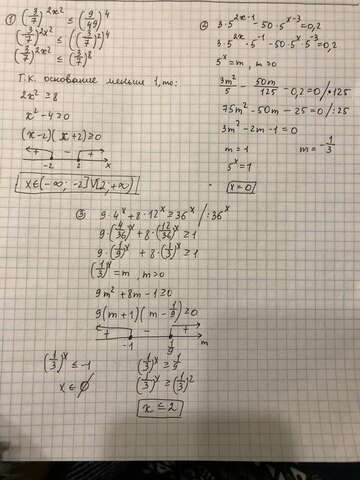 ① (3/7)^2x² ≤ (9/49)^4
(3/7)^2x² ≤ ((3/7)²)^4
(3/7)^2x² ≤ (3/7)^8
Т.К. основание меньше 1, то:
2x² ≥ 8
x² - 4 ≥ 0
(x-2)(x+2) ≥ 0
+ - +
-2 2 x
x∈(-∞; -2]U[2, +∞)
② 3·5^2x-1 - 50·5^x-3 = 0,2
3·5^2x·5^-1 - 50·5^x·5^-3 = 0,2
5^x = m, m>0
3m²/5 - 50m/125 - 0,2 = 0 /·125
75m² - 50m - 25 = 0 /:25
3m² - 2m - 1 = 0
m = 1 m = -1/3
5^x = 1
x = 0
③ 9·4^x + 8·12^x ≥ 36^x /:36^x
9·(4/36)^x + 8·(12/36)^x ≥ 1
9·(1/9)^x + 8·(1/3)^x ≥ 1
(1/3)^x = m, m>0
9m² + 8m - 1 ≥ 0
9(m+1)(m - 1/9) ≥ 0
+ - +
-1 1/9 m
(1/3)^x ≤ -1 (1/3)^x ≥ 1/9
x ∈ ∅ (1/3)^x ≥ (1/3)^2
x ≤ 2